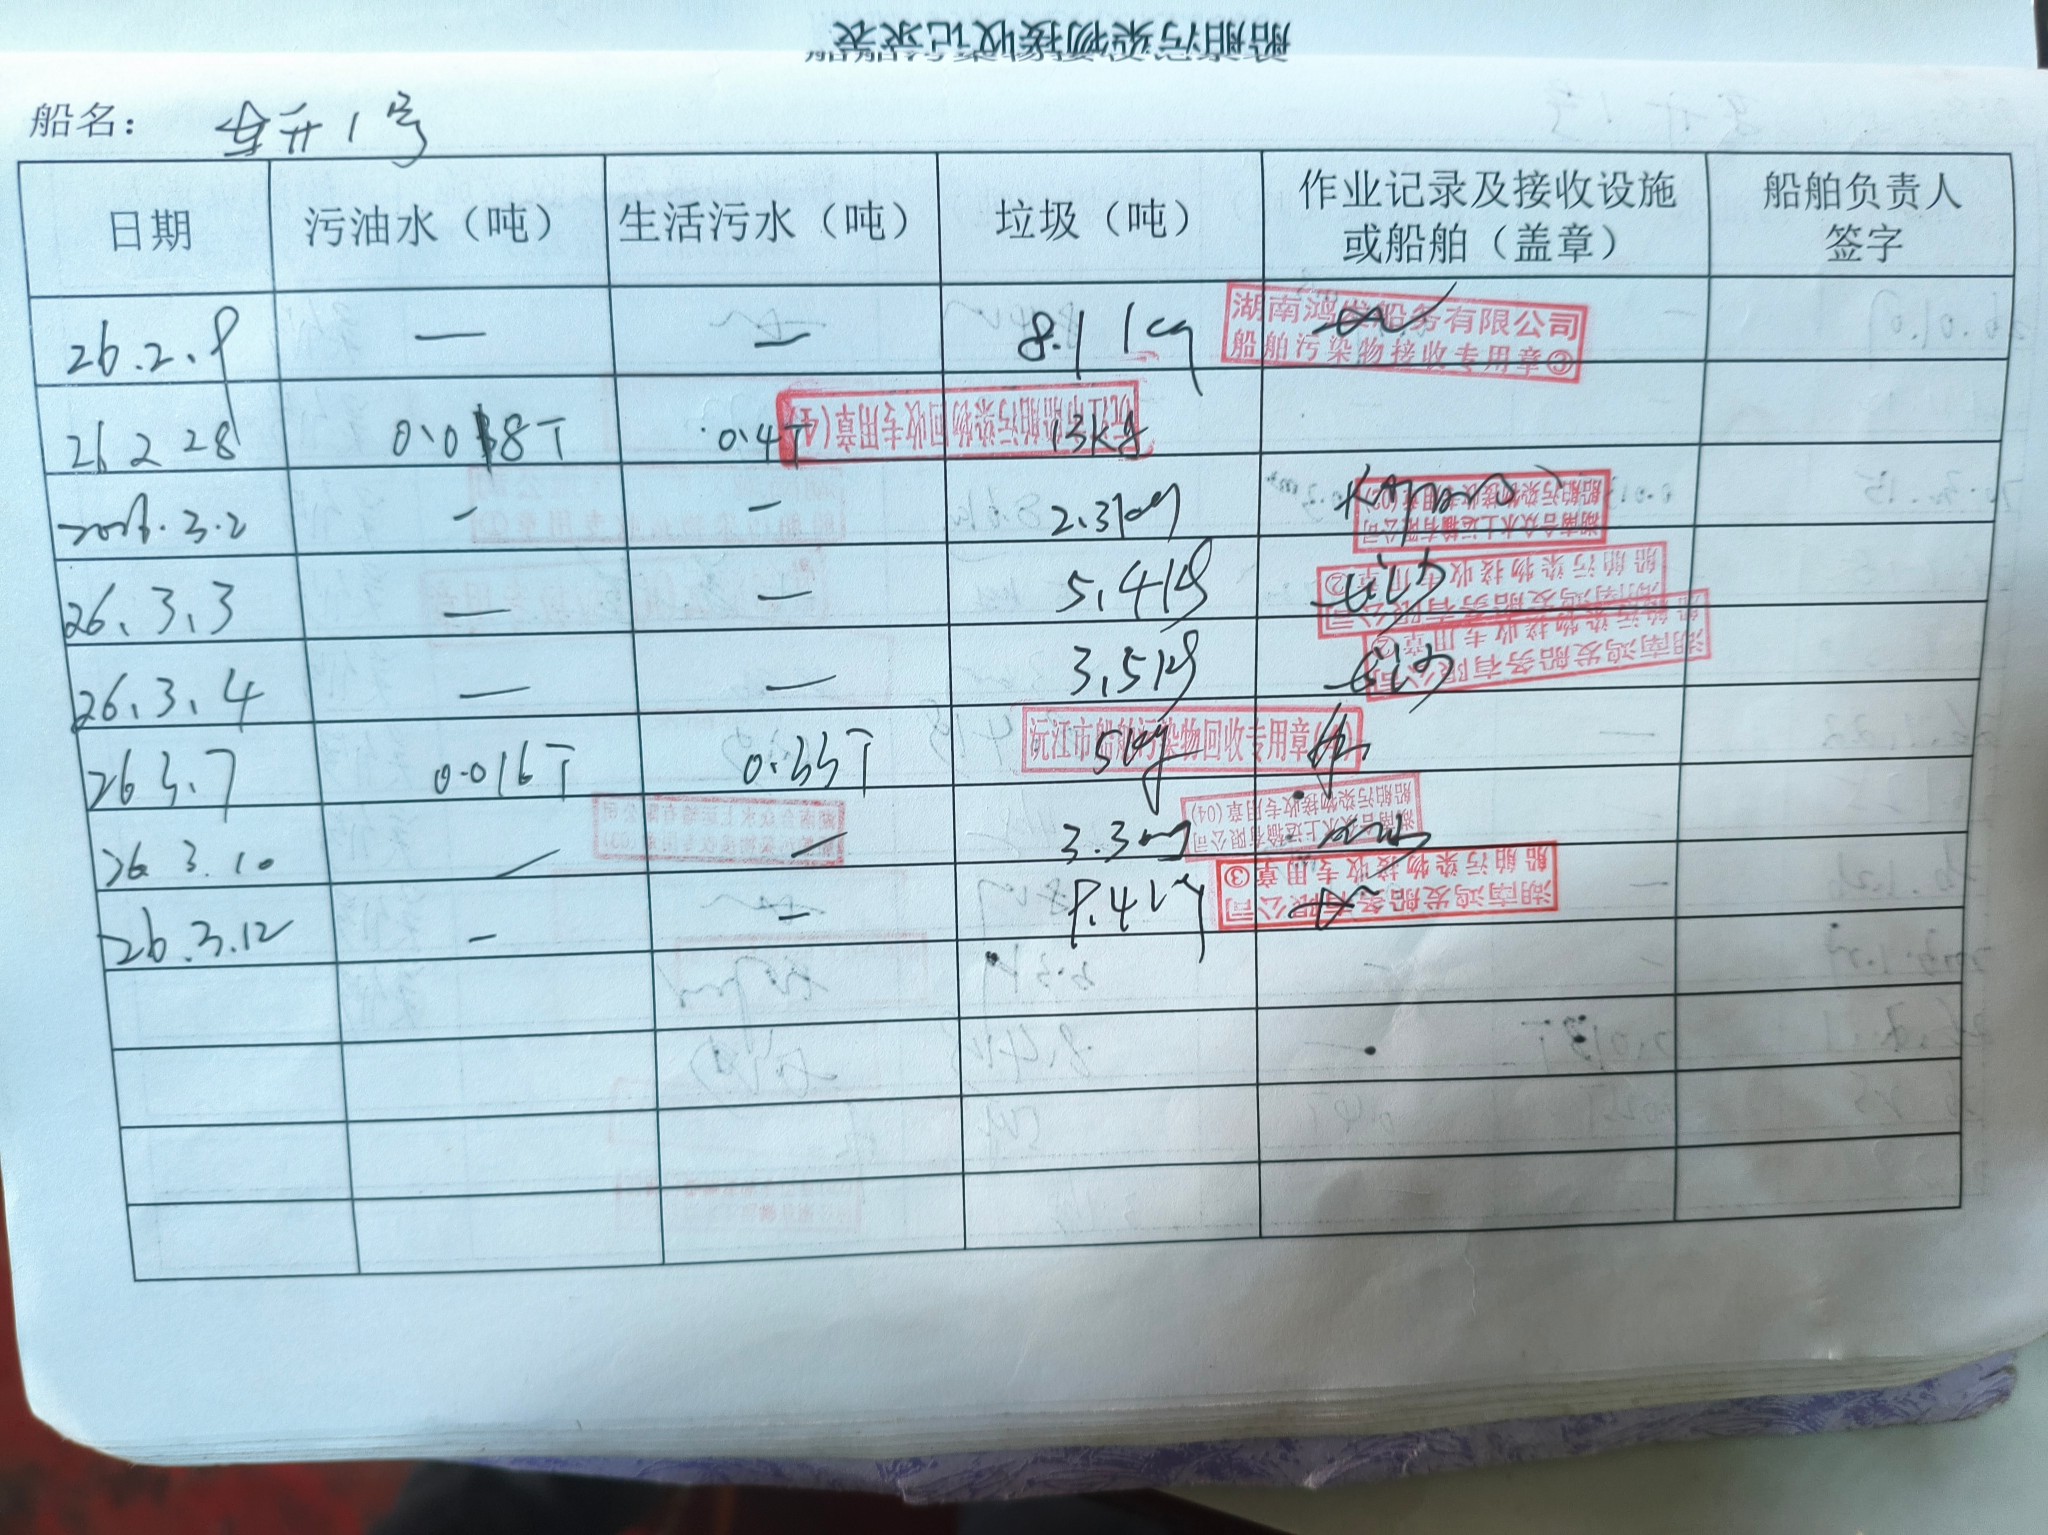 船舶污染物接收记录表
船名： 升1号
日期 污油水（吨） 生活污水（吨） 垃圾（吨） 作业记录及接收设施或船舶（盖章） 船舶负责人签字
26.2.9 — — 8.1kg 湖南鸿发船务有限公司
船舶污染物接收专用章③
26.2.28 0.018T 0.4T 13kg 沅江市船舶污染物回收专用章(4)
2026.3.2 — — 2.3kg 湖南合众水上运输有限公司
船舶污染物接收专用章
26.3.3 — — 5.4kg 湖南鸿发船务有限公司
船舶污染物接收专用章②
26.3.4 — — 3.5kg 湖南鸿发船务有限公司
船舶污染物接收专用章②
26.3.7 0.016T 0.35T 5kg 沅江市船舶污染物回收专用章
26.3.10 — — 3.3kg 湖南合众水上运输有限公司
船舶污染物接收专用章(04)
湖南合众水上运输有限公司
船舶污染物接收专用章(03)
26.3.12 — — 9.4kg 湖南鸿发船务有限公司
船舶污染物接收专用章③